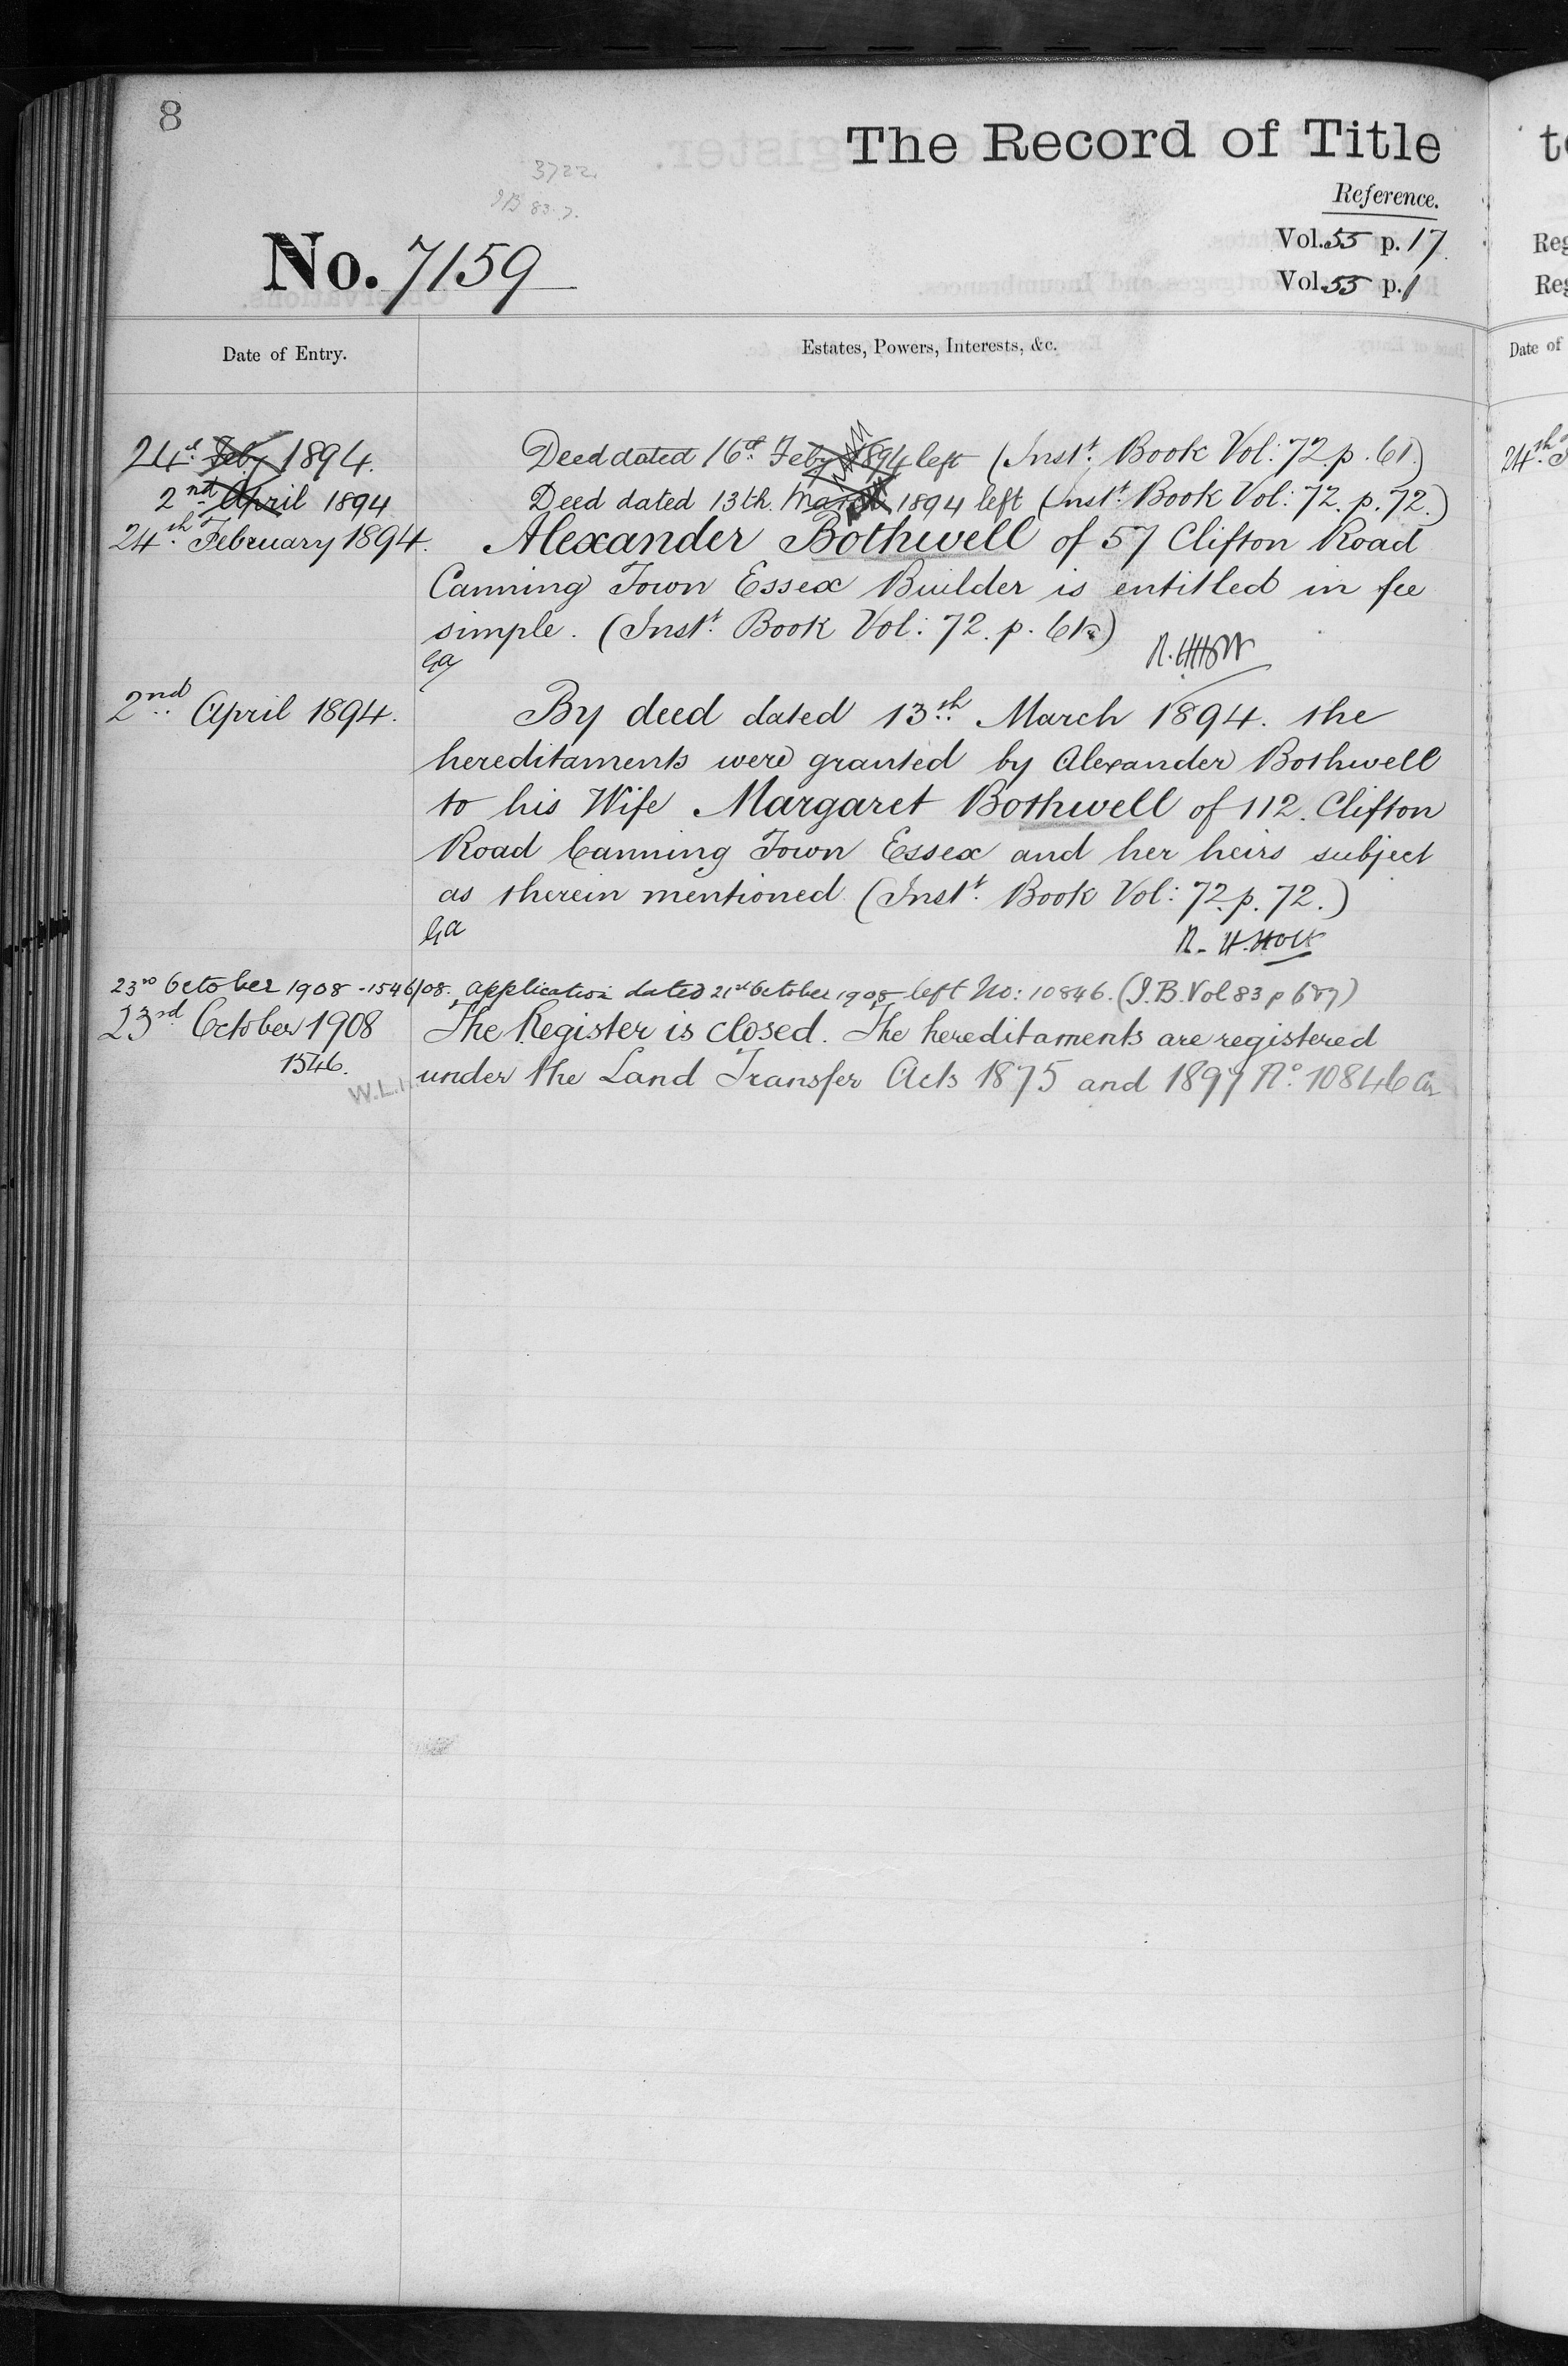 8
The Record of Title
3722.
Reference.
No. 7159
Vol. 55 p. 17
Vol. 55 p. 1
Date of Entry.
Estates, Powers, Interests, &c.
Date of
24th Feby 1894. Deed dated 16th Feby 1894 left (Inst. Book Vol: 72. p. 61.)
2nd April 1894 Deed dated 13th March 1894 left (Inst. Book Vol: 72. p. 72.)
24th February 1894. Alexander Bothwell of 57 Clifton Road
Canning Town Essex Builder is entitled in fee
simple. (Inst. Book Vol: 72. p. 61.)
2nd April 1894. By deed dated 13th March 1894. the
hereditaments were granted by Alexander Bothwell
to his Wife Margaret Bothwell of 112. Clifton
Road Canning Town Essex and her heirs subject
as therein mentioned (Inst. Book Vol: 72. p. 72.)
R. H. Holt
23rd October 1908 - 1546/08. Application dated 21st October 1908 left No: 10846. (I.B. Vol 83 p
23rd October 1908 The Register is closed. The hereditaments are registered
1546. under the Land Transfer Acts 1875 and 1897 No. 10846